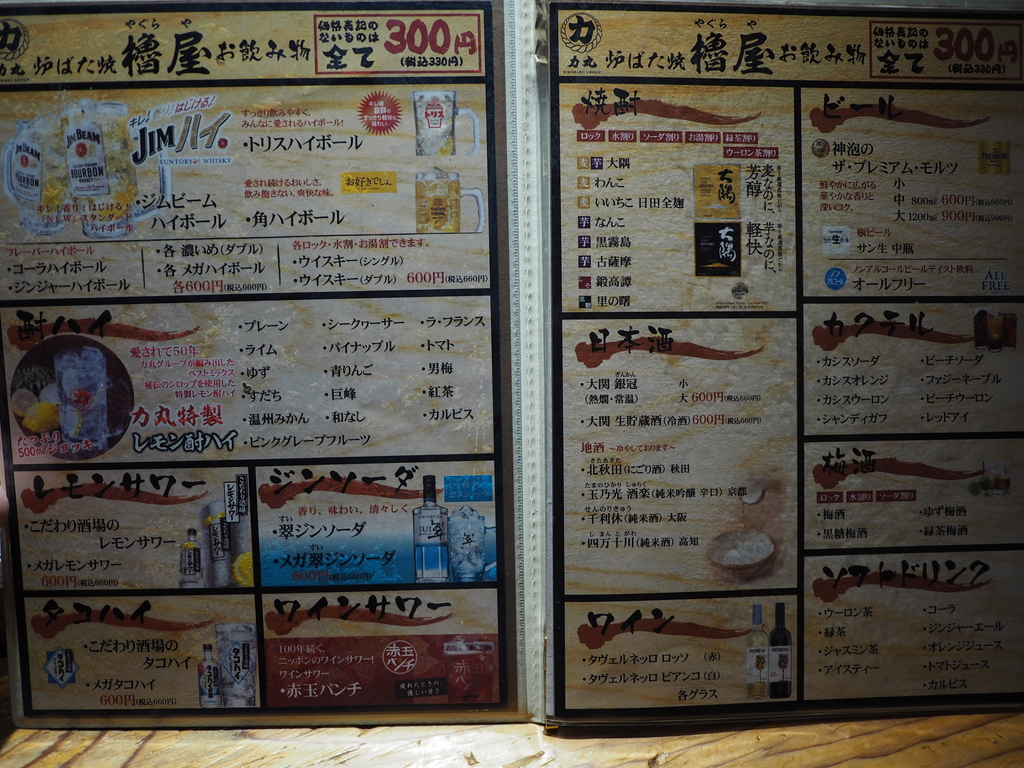 力
力丸
炉ばた焼
やぐら や
櫓屋
お飲み物
価格表記の
ないものは
全て
300円
(税込330円)
JIM BEAM
BOURBON
WHISKEY
キレ!香り!はじける!
JIMハイ.
SUNTORY WHISKY
キレ!香り!はじける!
「NEW」スタンダード
ハイボール
・ジムビーム
ハイボール
すっきり飲みやすく、
みんなに愛されるハイボール!
・トリスハイボール
トリス
愛され続けるおいしさ。
飲み飽きない、爽快な味。
お好きでしょ。
・角ハイボール
フレーバーハイボール
・コーラハイボール
・ジンジャーハイボール
・各 濃いめ(ダブル)
・各 メガハイボール
各600円(税込660円)
各ロック・水割・お湯割できます。
・ウイスキー(シングル)
・ウイスキー(ダブル) 600円(税込660円)
酎ハイ
愛されて50年
力丸グループが編み出した
ベストミックス
秘伝のシロップを使用した
特製レモン酎ハイ
力丸特製
レモン酎ハイ
たっぷり
500mlジョッキ
・プレーン
・ライム
・ゆず
・すだち
・温州みかん
・ピンクグレープフルーツ
・シークヮーサー
・パイナップル
・青りんご
・巨峰
・和なし
・ラ・フランス
・トマト
・男梅
・紅茶
・カルピス
レモンサワー
・こだわり酒場の
レモンサワー
・メガレモンサワー
600円(税込660円)
ジンソーダ
香り、味わい、清々しく
すい
・翠ジンソーダ
すい
・メガ翠ジンソーダ
600円(税込660円)
タコハイ
・こだわり酒場の
タコハイ
・メガタコハイ
600円(税込660円)
タコハイ
ワインサワー
100年続く、
ニッポンのワインサワー!
ワインサワー
・赤玉パンチ
赤玉
パンチ
疲れたときの、
優しい甘さ
力
力丸
炉ばた焼
やぐら や
櫓屋
お飲み物
価格表記の
ないものは
全て
300円
(税込330円)
焼酎
ロック 水割り ソーダ割り お湯割り 緑茶割り
ウーロン茶割り
麦 芋 大隅
麦 わんこ
麦 いいちこ 日田全麹
芋 なんこ
芋 黒霧島
芋 古薩摩
鍛高譚
里の曙
大隅
大隅
麦なのに、芳醇
芋なのに、軽快
日本酒
ぎんかん
・大関 銀冠 小
(熱燗・常温) 大 600円(税込660円)
・大関 生貯蔵酒(冷酒)600円(税込660円)
地酒 〜冷やしております〜
きたあきた
・北秋田(にごり酒) 秋田
たまのひかり しゅらく
・玉乃光 酒楽(純米吟醸 辛口) 京都
せんのりきゅう
・千利休(純米酒) 大阪
しまんとがわ
・四万十川(純米酒) 高知
ワイン
・タヴェルネッロ ロッソ (赤)
・タヴェルネッロ ビアンコ(白)
各グラス
ビール
神泡の
ザ・プレミアム・モルツ
鮮やかに広がる
華やかな香りと
深いコク。
小
中 800㎖ 600円(税込660円)
大 1200㎖ 900円(税込990円)
瓶ビール
サン生 中瓶
ノンアルコールビールテイスト飲料
オールフリー
ALL
FREE
カクテル
・カシスソーダ
・カシスオレンジ
・カシスウーロン
・シャンディガフ
・ピーチソーダ
・ファジーネーブル
・ピーチウーロン
・レッドアイ
梅酒
ロック 水割り ソーダ割り
・梅酒
・黒糖梅酒
・ゆず梅酒
・緑茶梅酒
ソフトドリンク
・ウーロン茶
・緑茶
・ジャスミン茶
・アイスティー
・コーラ
・ジンジャーエール
・オレンジジュース
・トマトジュース
・カルピス